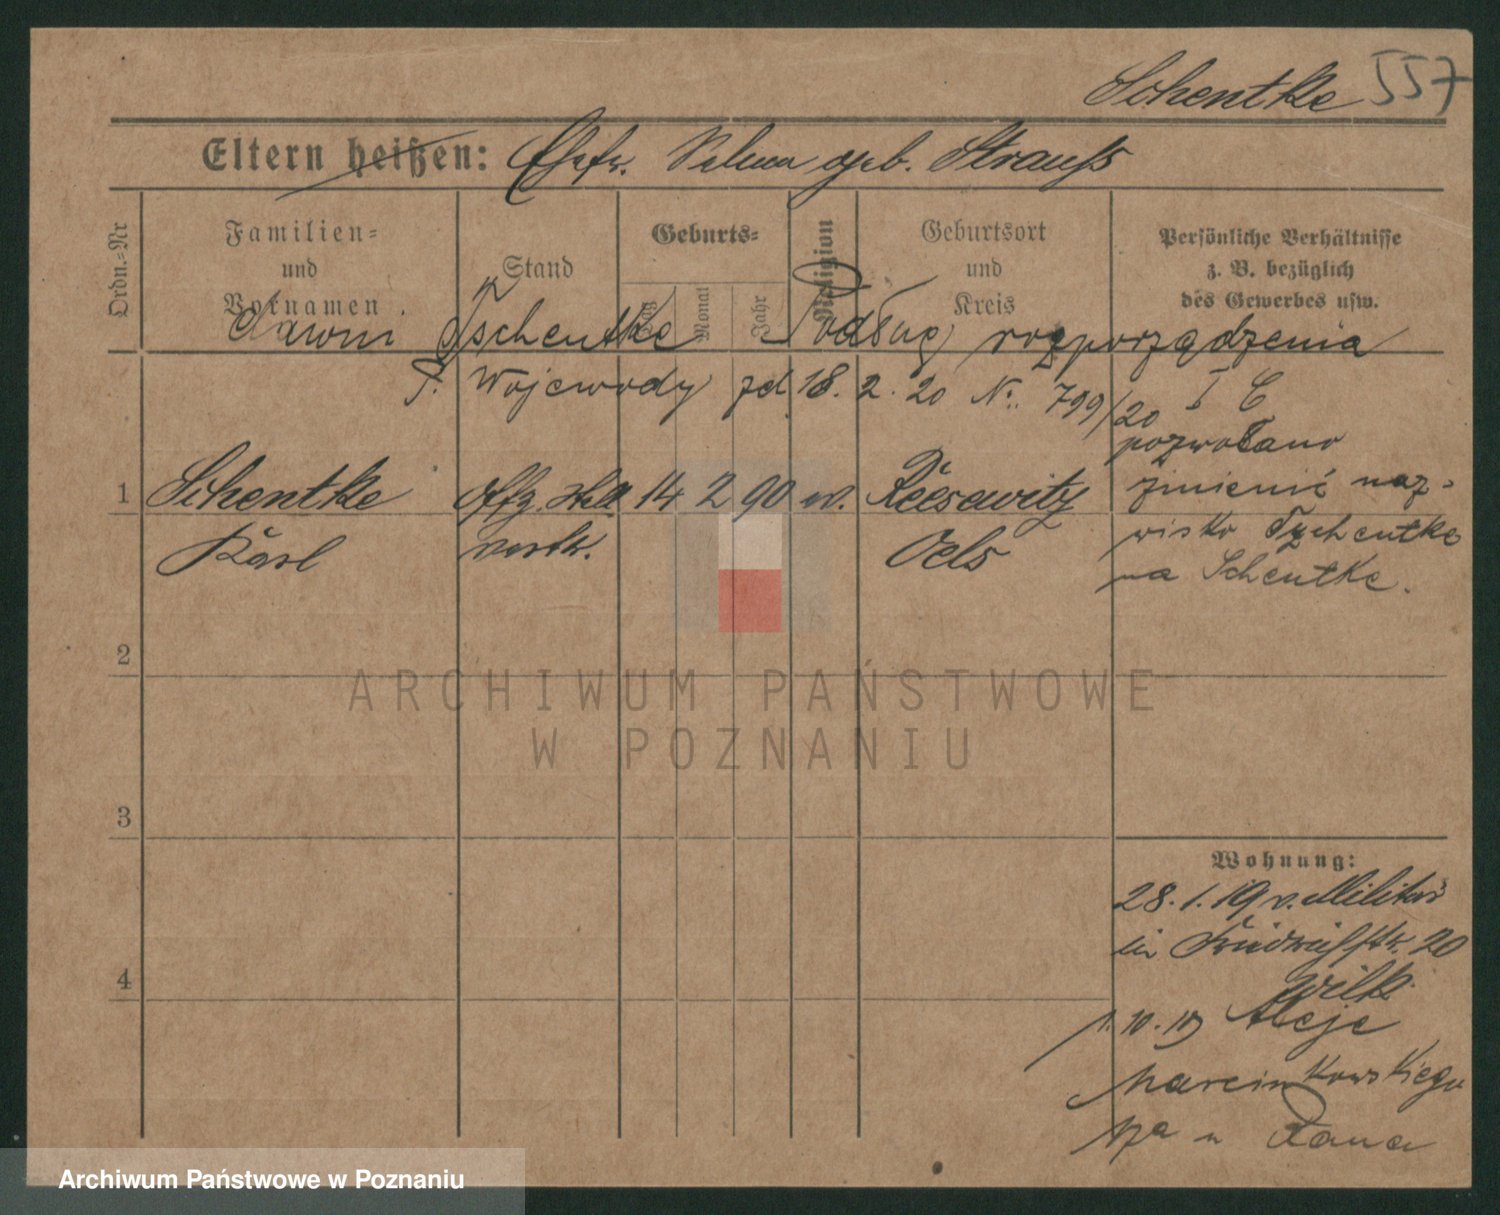 Schentke 557
Eltern heißen: Ehefr. Selma geb. Strauss
Ordn.-Nr
Familien- und Vornamen
Stand
Geburts-
Tag
Monat
Jahr
Religion
Geburtsort und Kreis
Persönliche Verhältnisse
z. B. bezüglich
des Gewerbes usw.
dawni Tschentke Podług rozporządzenia
P. Wojewody zd 18. 2. 20 N. 799/20 I C
pozwolano
zmienić naz-
wisko Tschentke
na Schentke.
1 Schentke Offz. 14 2 90 ev. Reesewitz
Karl Oels
2
3
4
Wohnung:
28. 1. 19 v. Militär
in 20
Wilk
1. 10. 19 Aleje
Marcinkowskiego
ARCHIWUM PAŃSTWOWE
W POZNANIU
Archiwum Państwowe w Poznaniu